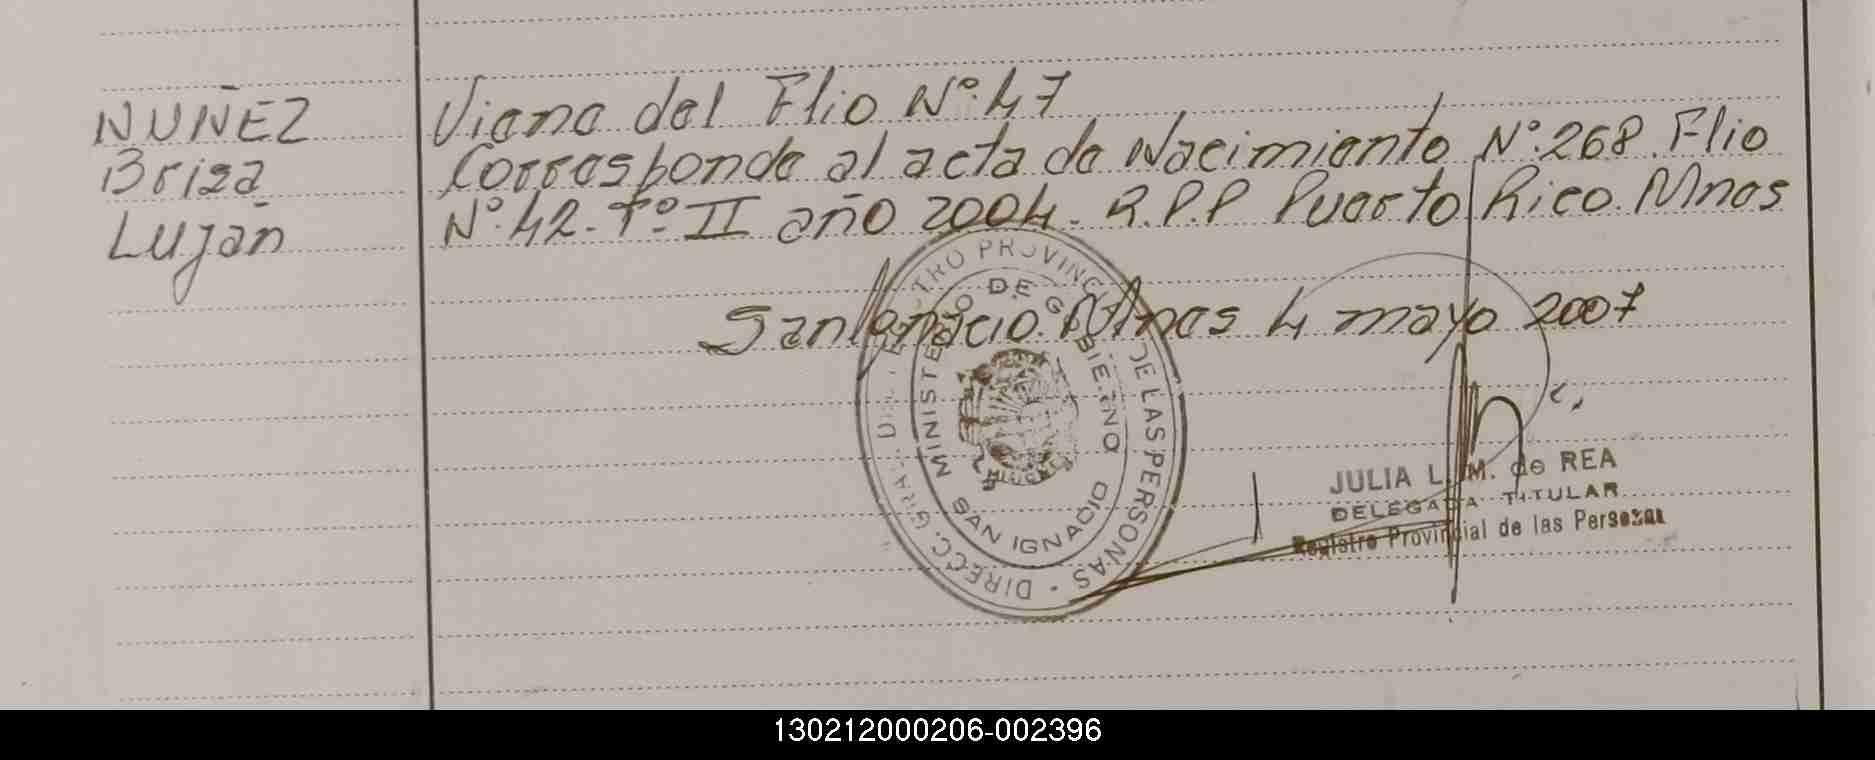 NUÑEZ
Briza
Luján
Viene del Flio Nº 47
Corresponde al acta de Nacimiento Nº 268. Flio
Nº 42. Tº II año 2004. R.P.P Puerto Rico. Mnes
San Ignacio. Mnes 4 mayo 2007
DE LAS PERSONAS - DIRECC. GRAL. DEL REGISTRO PROVINCIAL
MINISTERIO DE GOBIERNO
SAN IGNACIO
JULIA L. M. de REA
DELEGADA TITULAR
Registro Provincial de las Personas
130212000206-002396